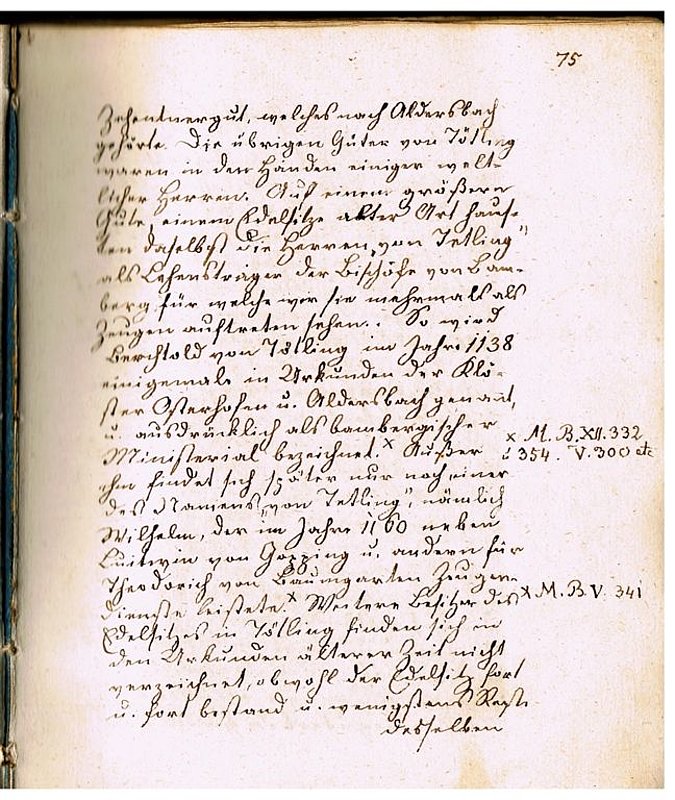 75
Zehentnergut, welches nach Aldersbach
gehörte. Die übrigen Güter von Tötling
waren in den Händen einiger welt-
licher Herren. Auf einem größern
Gute, einem Edelsitze alter Art haus-
ten daselbst die Herren „von Tetling"
als Lehensträger der Bischöfe von Bam-
berg für welche wir sie mehrmals als
Zeugen auftreten sehen. So wird
Berchtold von Tötling im Jahre 1138
einigemale in Urkunden der Klö-
ster Osterhofen u. Aldersbach genannt,
u. ausdrücklich als bambergischer
Ministerial bezeichnet. x Außer
x M. B. XII. 332
ihm findet sich später nur noch einer
354. V. 300 etc
des Namens „von Tetling", nämlich
Wilhelm, der im Jahre 1160 neben
Luitwin von u. andern für
Theodorich von Baumgarten Zeugen-
dienste leistete. x Weitere Besitzer des
x M. B. V. 341
Edelsitzes in Tötling finden sich in
den Urkunden älterer Zeit nicht
verzeichnet, obwohl der Edelsitz fort
u. fort bestand u. wenigstens Reste
desselben